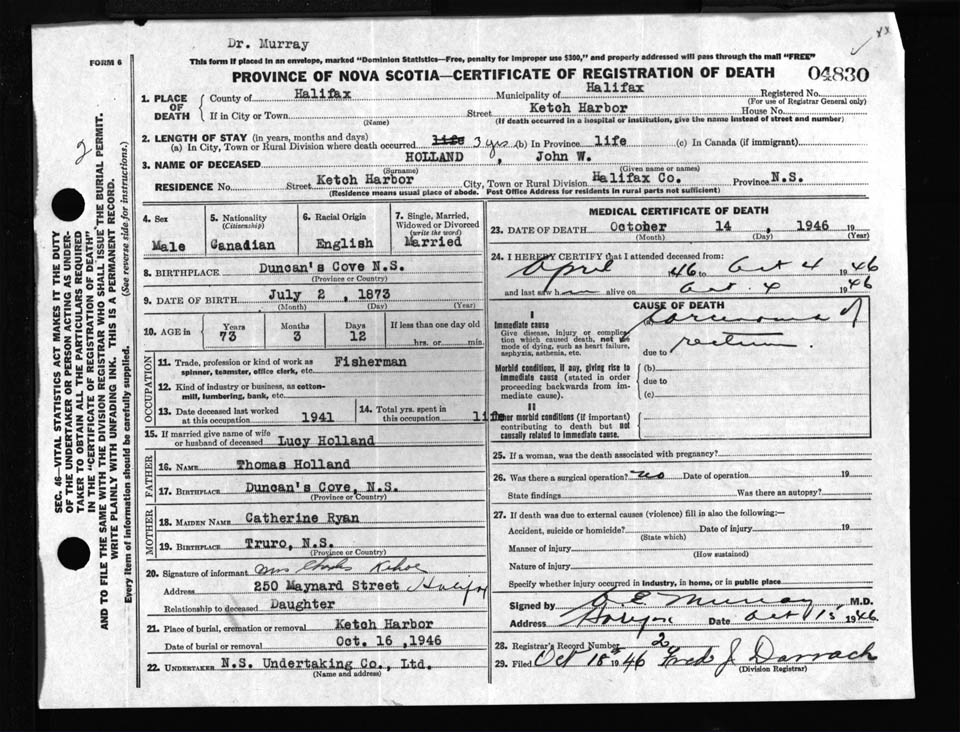 Dr. Murray
FORM 6
This form if placed in an envelope, marked "Dominion Statistics—Free, penalty for improper use $300," and properly addressed will pass through the mail "FREE"
PROVINCE OF NOVA SCOTIA—CERTIFICATE OF REGISTRATION OF DEATH
04830
1. PLACE OF DEATH
County of Halifax Municipality of Halifax Registered No.
(For use of Registrar General only)
If in City or Town Street Ketch Harbor House No.
(Name) (If death occurred in a hospital or institution, give the name instead of street and number)
2. LENGTH OF STAY (in years, months and days)
(a) In City, Town or Rural Division where death occurred life 3 yrs (b) In Province life (c) In Canada (if immigrant)
3. NAME OF DECEASED HOLLAND , John W.
(Surname) (Given name or names)
RESIDENCE No. Street Ketch Harbor City, Town or Rural Division Halifax Co. Province N.S.
(Residence means usual place of abode. Post Office Address for residents in rural parts not sufficient)
4. Sex
Male
5. Nationality
(Citizenship)
Canadian
6. Racial Origin
English
7. Single, Married, Widowed or Divorced
(write the word)
Married
8. BIRTHPLACE Duncan's Cove N.S.
(Province or Country)
9. DATE OF BIRTH July 2 , 1873
(Month) (Day) (Year)
10. AGE in
Years Months Days If less than one day old
73 3 12 hrs. or min.
OCCUPATION
11. Trade, profession or kind of work as Fisherman
spinner, teamster, office clerk, etc.
12. Kind of industry or business, as cotton-
mill, lumbering, bank, etc.
13. Date deceased last worked
at this occupation 1941
14. Total yrs. spent in
this occupation life
15. If married give name of wife
or husband of deceased Lucy Holland
FATHER
16. NAME Thomas Holland
17. BIRTHPLACE Duncan's Cove, N.S.
(Province or Country)
MOTHER
18. MAIDEN NAME Catherine Ryan
19. BIRTHPLACE Truro, N.S.
(Province or Country)
20. Signature of informant Mrs Charles Kehoe
Address 250 Maynard Street Halifax
Relationship to deceased Daughter
21. Place of burial, cremation or removal Ketch Harbor
Date of burial or removal Oct. 16 ,1946
22. UNDERTAKER N.S. Undertaking Co., Ltd.
(Name and address)
MEDICAL CERTIFICATE OF DEATH
23. DATE OF DEATH October 14 , 1946 19
(Month) (Day) (Year)
24. I HEREBY CERTIFY that I attended deceased from:
April 46 to Oct 4 1946
and last saw him alive on Oct. 4 1946
CAUSE OF DEATH
I
Immediate cause
Give disease, injury or complica-
tion which caused death, not the
mode of dying, such as heart failure,
asphyxia, asthenia, etc.
Carcinoma of
due to rectum.
Morbid conditions, if any, giving rise to
immediate cause (stated in order
proceeding backwards from im-
mediate cause).
(b)
due to
(c)
II
Other morbid conditions (if important)
contributing to death but not
causally related to immediate cause.
25. If a woman, was the death associated with pregnancy?
26. Was there a surgical operation? no Date of operation 19
State findings Was there an autopsy?
27. If death was due to external causes (violence) fill in also the following:—
Accident, suicide or homicide? Date of injury 19
(State which)
Manner of injury
(How sustained)
Nature of injury
Specify whether injury occurred in industry, in home, or in public place
Signed by A E Murray, M.D.
Address Halifax Date Oct 15 1946
28. Registrar's Record Number 2
29. Filed Oct 18 1946 Fred J Darrach
(Division Registrar)
2
SEC. 46—VITAL STATISTICS ACT MAKES IT THE DUTY
OF THE UNDERTAKER OR PERSON ACTING AS UNDER-
TAKER TO OBTAIN ALL THE PARTICULARS REQUIRED
IN THE "CERTIFICATE OF REGISTRATION OF DEATH"
AND TO FILE THE SAME WITH THE DIVISION REGISTRAR WHO SHALL ISSUE THE BURIAL PERMIT.
WRITE PLAINLY WITH UNFADING INK. THIS IS A PERMANENT RECORD.
Every item of information should be carefully supplied. (See reverse side for instructions.)